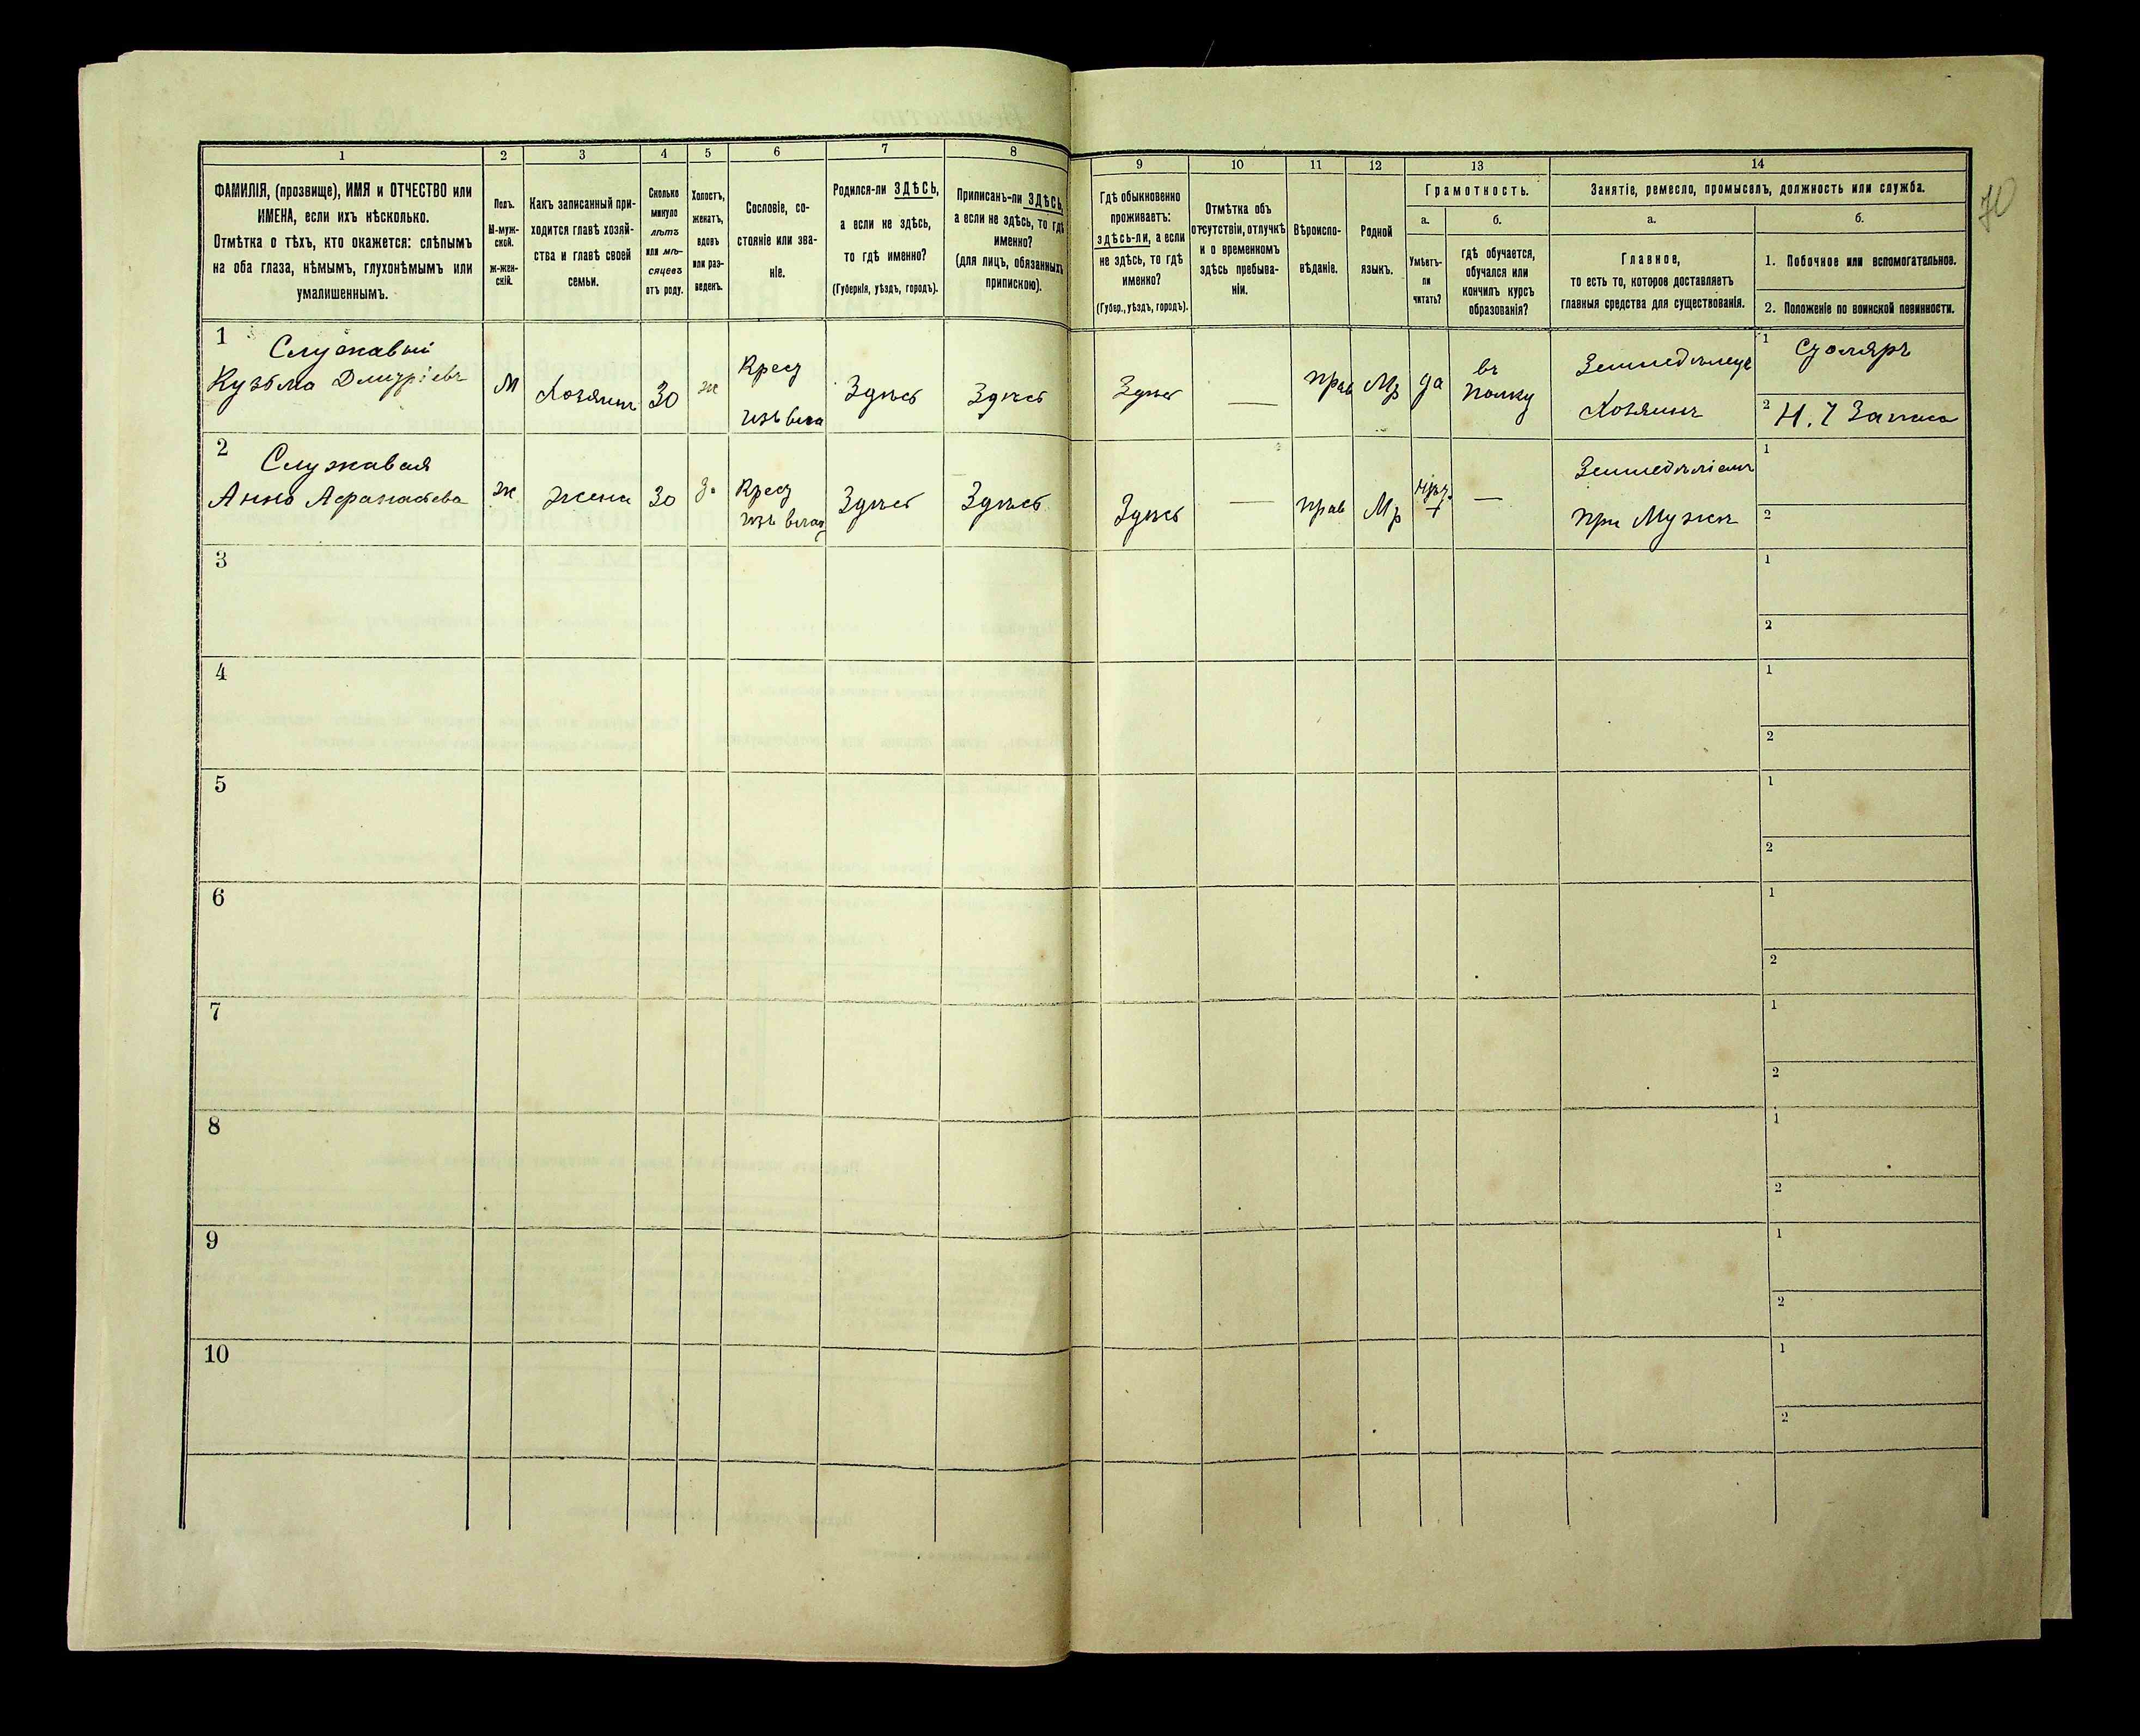 1
2
3
4
5
6
7
8
ФАМИЛІЯ, (прозвище), ИМЯ и ОТЧЕСТВО или
ИМЕНА, если ихъ нѣсколько.
Отмѣтка о тѣхъ, кто окажется: слѣпымъ
на оба глаза, нѣмымъ, глухонѣмымъ или
умалишеннымъ.
Полъ.
М-муж-
ской.
ж-жен-
скій.
Какъ записанный при-
ходится главѣ хозяй-
ства и главѣ своей
семьи.
Сколько
минуло
лѣтъ
или мѣ-
сяцевъ
отъ роду.
Холостъ,
женатъ,
вдовъ
или раз-
веденъ.
Сословіе, со-
стояніе или зва-
ніе.
Родился-ли ЗДѢСЬ,
а если не здѣсь,
то гдѣ именно?
(Губернія, уѣздъ, городъ).
Приписанъ-ли ЗДѢСЬ,
а если не здѣсь, то гдѣ
именно?
(для лицъ, обязанныхъ
припискою).
9
10
11
12
13
14
Гдѣ обыкновенно
проживаетъ:
здѣсь-ли, а если
не здѣсь, то гдѣ
именно?
(Губер., уѣздъ, городъ).
Отмѣтка объ
отсутствіи, отлучкѣ
и о временномъ
здѣсь пребыва-
ніи.
Вѣроиспо-
вѣданіе.
Родной
языкъ.
Грамотность.
а.
Умѣетъ-
ли
читать?
б.
гдѣ обучается,
обучался или
кончилъ курсъ
образованія?
Занятіе, ремесло, промыселъ, должность или служба.
а.
Главное,
то есть то, которое доставляетъ
главныя средства для существованія.
б.
1. Побочное или вспомогательное.
2. Положеніе по воинской повинности.
70
1
Служавый
Кузьма Дмитріевъ
М
Хозяинъ
30
ж
Крест
изъ влад
Здѣсь
Здѣсь
Здѣсь
—
прав
Мр
да
въ
полку
Земледѣлецъ
Хозяинъ
1 Столяръ
2 Н. Ч Запаса
2
Служавая
Анна Афанасьева
ж
жена
30
з.
Крест
изъ влад
Здѣсь
Здѣсь
Здѣсь
—
прав
Мр
Нѣтъ
+
—
при Мужѣ
1
2
3
1
2
4
1
2
5
1
2
6
1
2
7
1
2
8
1
2
9
1
2
10
1
2